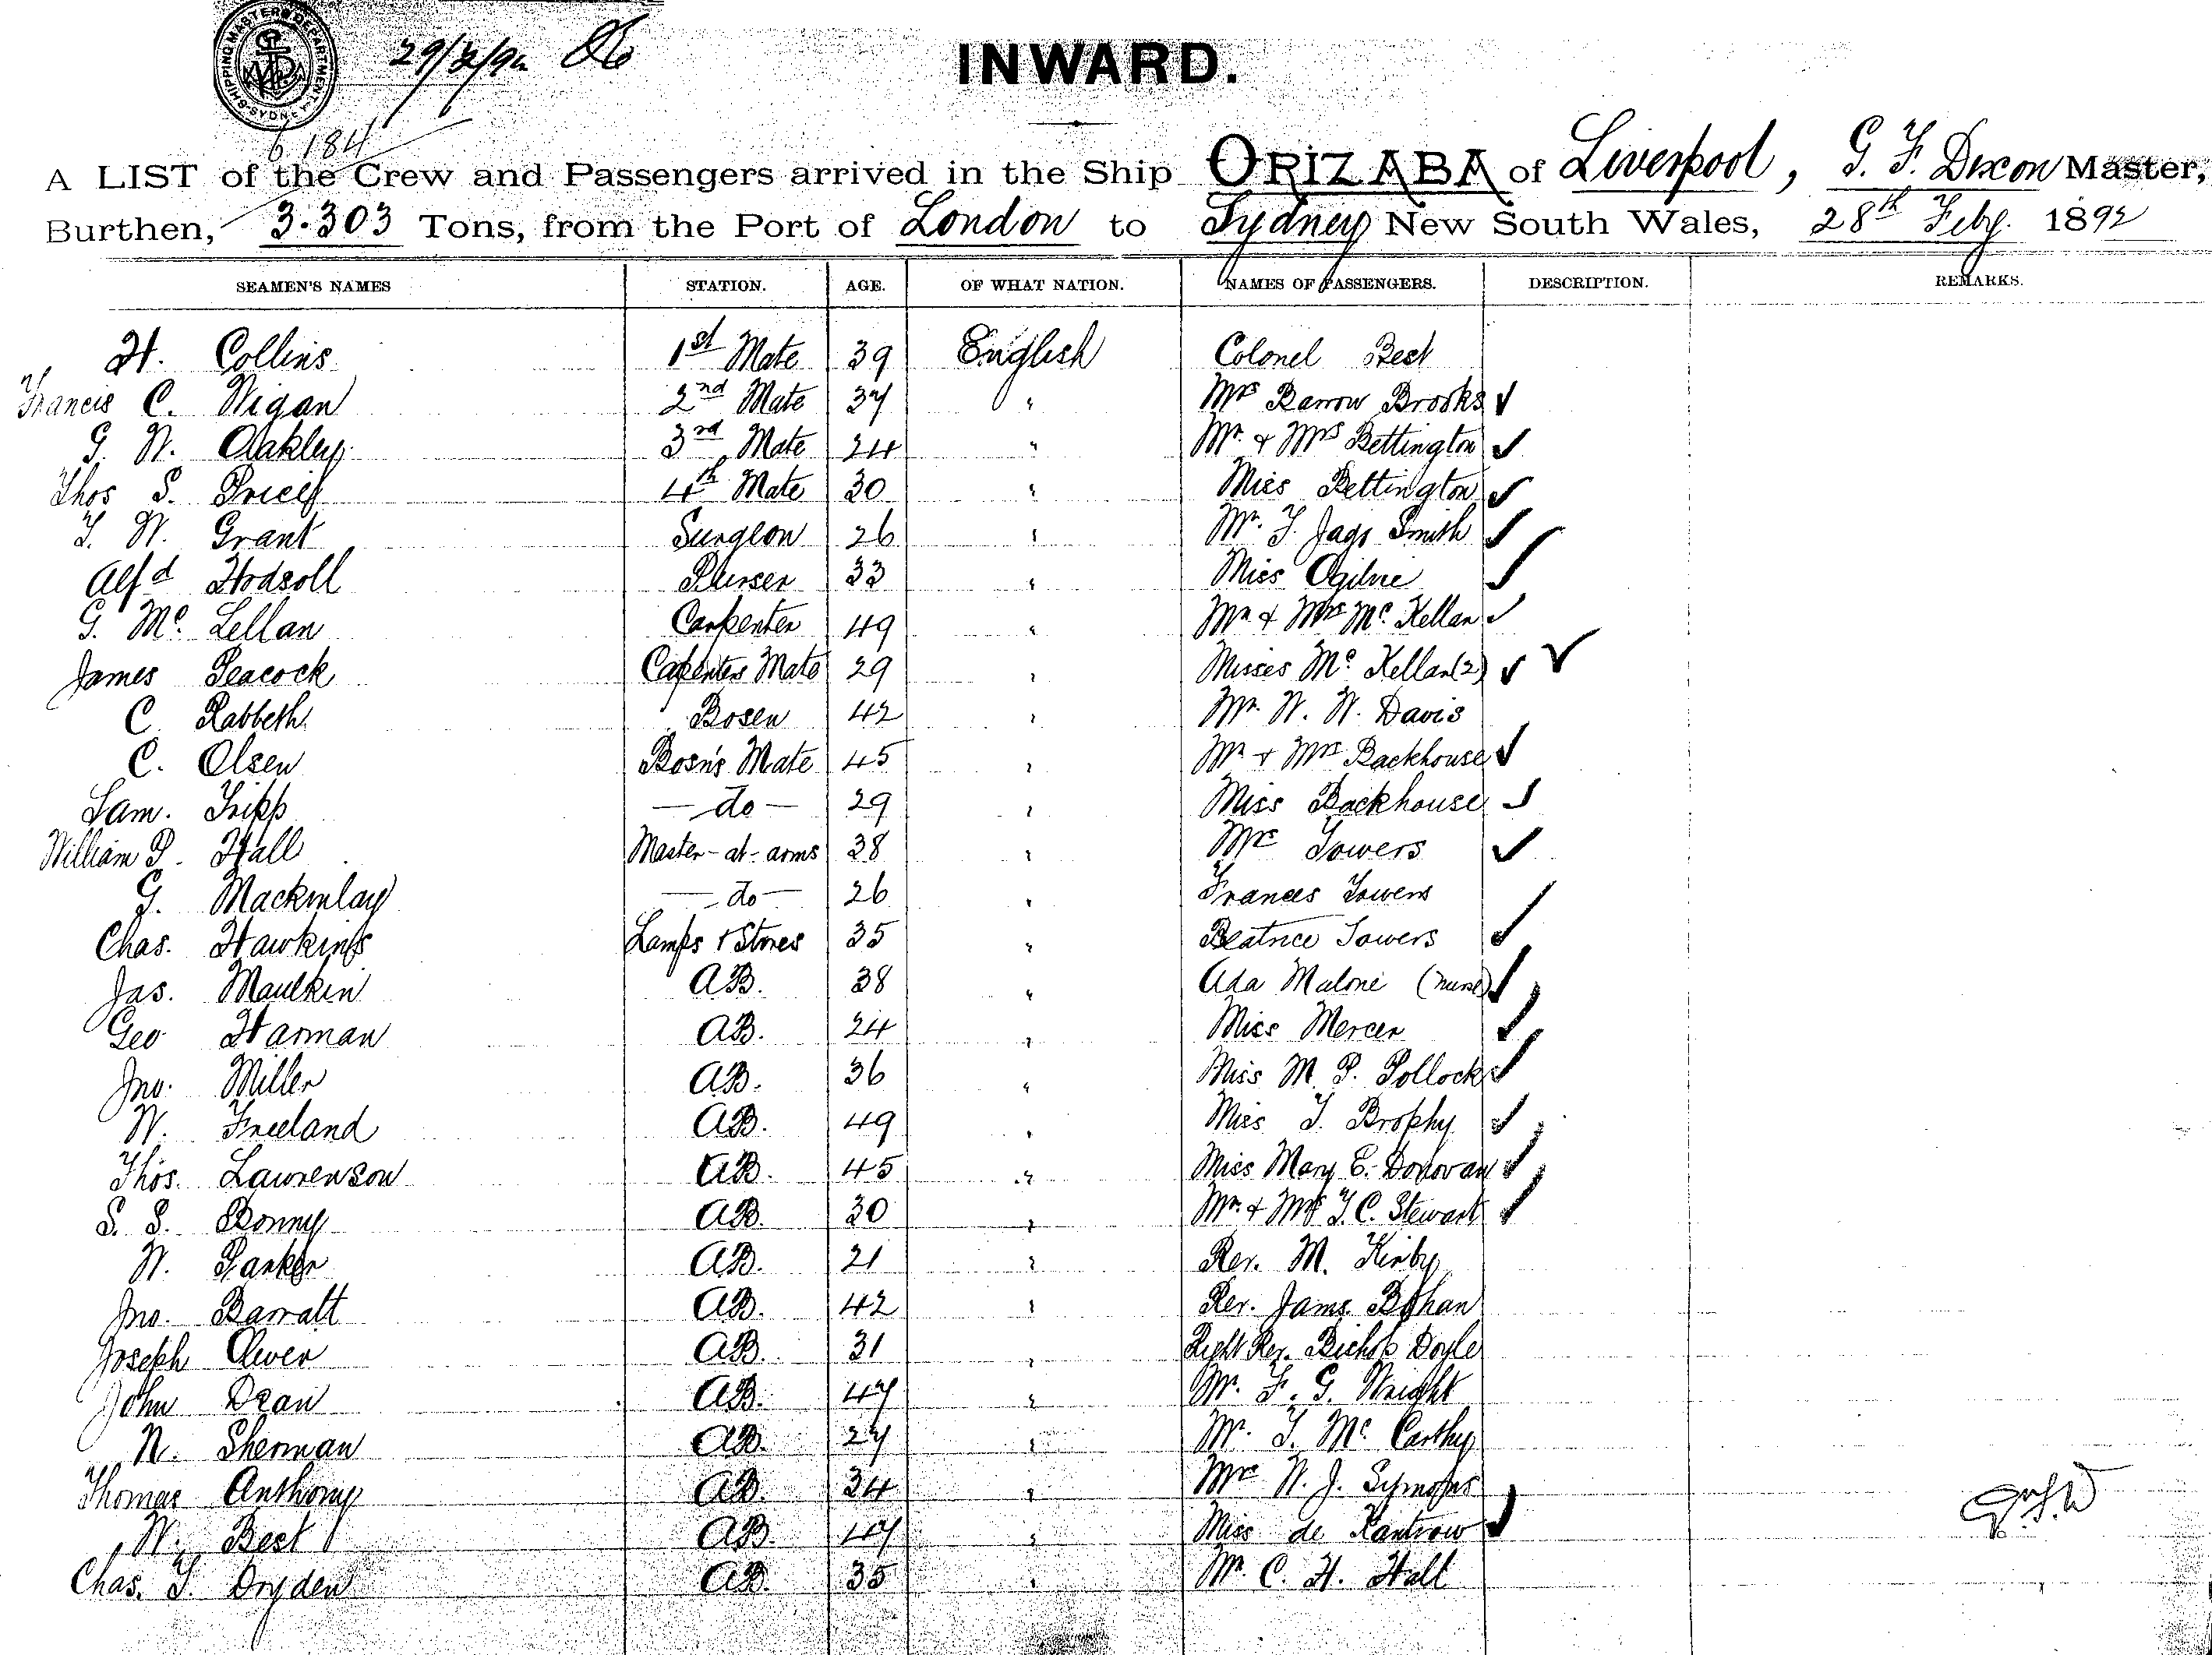 SHIPPING MASTERS DEPARTMENT SYDNEY
29/2/92
INWARD.
6 184
A LIST of the Crew and Passengers arrived in the Ship ORIZABA of Liverpool, G. F. Dixon Master,
Burthen, 3.303 Tons, from the Port of London to Sydney New South Wales, 28th Feby. 1892
SEAMEN'S NAMES STATION. AGE. OF WHAT NATION. NAMES OF PASSENGERS. DESCRIPTION. REMARKS.
H. Collins 1st Mate 39 English Colonel Best
Francis C. Wigan 2nd Mate 37 " Mrs Barrow Brooks ✓
G. W. Oakley 3rd Mate 24 " Mr. & Mrs Bettington ✓
Thos S. 4th Mate 30 " Miss Bettington ✓
T. W. Grant Surgeon 26 " Mr. T. Jago Smith ✓
Alfd Hodsoll Purser 33 " Miss Ogilvie ✓
G. Mc. Lellan Carpenter 49 " Mr & Mrs Mc. Kellar ✓
James Peacock Carpenters Mate 29 " Misses Mc. Kellar (2) ✓ ✓
C. Rabbeth Bosen 42 " Mr. W. W. Davis
C. Olsen Bosn's Mate 45 " Mr & Mrs Backhouse ✓
Sam. Tripp — do — 29 " Miss Backhouse ✓
William P. Hall Master-at-arms 38 " Mrs Towers ✓
G. Mackinlay — do — 26 " Frances Towers
Chas. Hawkings Lamps & Stores 35 " Beatrice Towers ✓
Jas. Maulkin AB. 38 " Ada Malone (nurse) ✓
Geo Harman AB. 24 " Miss Mercer ✓
Jno. Miller AB. 36 " Miss M. P. Pollock ✓
W. Freeland AB. 49 " Miss T. Brophy ✓
Thos. Lawrenson AB. 45 " Miss Mary E. Donovan ✓
S. S. Bonny AB. 30 " Mr. & Mrs T. C. Stewart ✓
W. Parker AB. 21 " Rev. M. Kirby
Jno. Barratt AB. 42 " Rev. James Bohan
Joseph Oliver AB. 31 " Right Rev. Bishop Doyle
John Dean AB. 47 " Mr. F. G. Wright
N. Sherman AB. 27 " Mr. T. Mc Carthy
Thomas Anthony AB. 34 " Mrs W. J. Symons
W. Best AB. 47 " Miss de Kantzow ✓
Chas. T. Dryden AB. 35 " Mr C. H. Hall